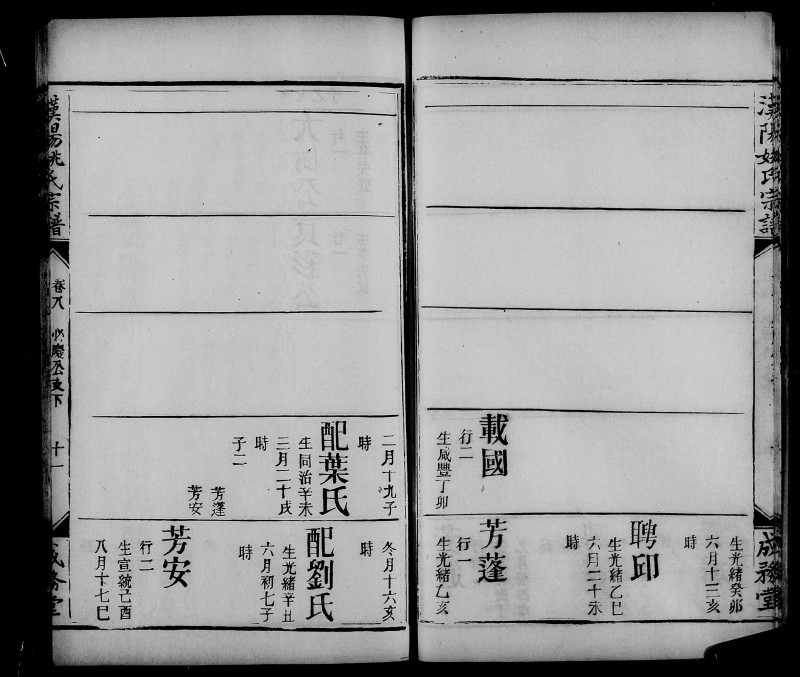 漢陽姚氏宗譜
成務堂
載國
行二
生咸豐丁卯
生光緒癸卯
六月十三亥
時
聘印
生光緒乙巳
六月二十未
時
芳蓬
行一
生光緒乙亥
二月十九子
時
配葉氏
生同治辛未
三月二十戌
時
子二
芳蓬
芳安
冬月十六亥
時
配劉氏
生光緒辛丑
六月初七子
時
芳安
行二
生宣統己酉
八月十七巳
漢陽姚氏宗譜
卷八
公支下
十一
成務堂